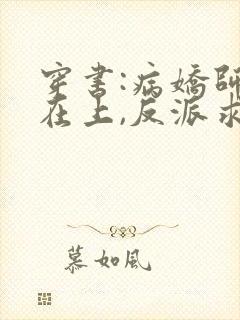 穿书:病娇师
在上,反派求
慕如风